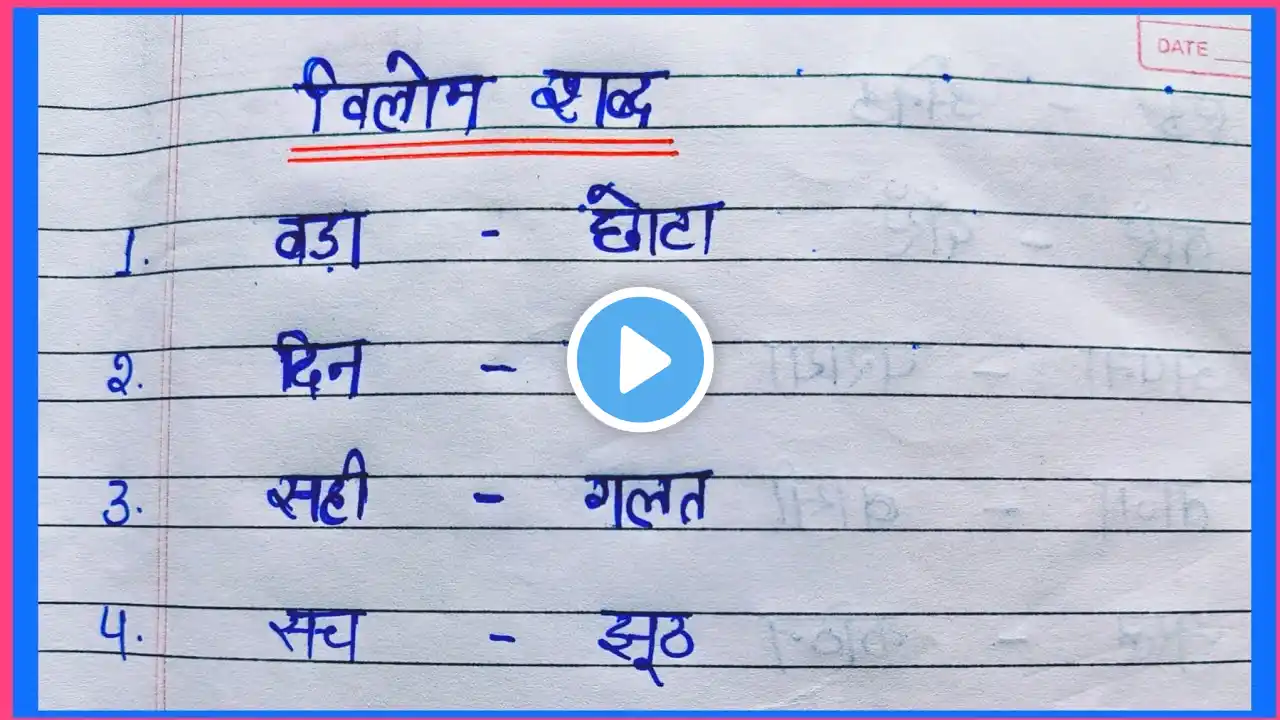 DATE
विलोम शब्द
1. बड़ा - छोटा
2. दिन -
3. सही - गलत
4. सच - झूठ